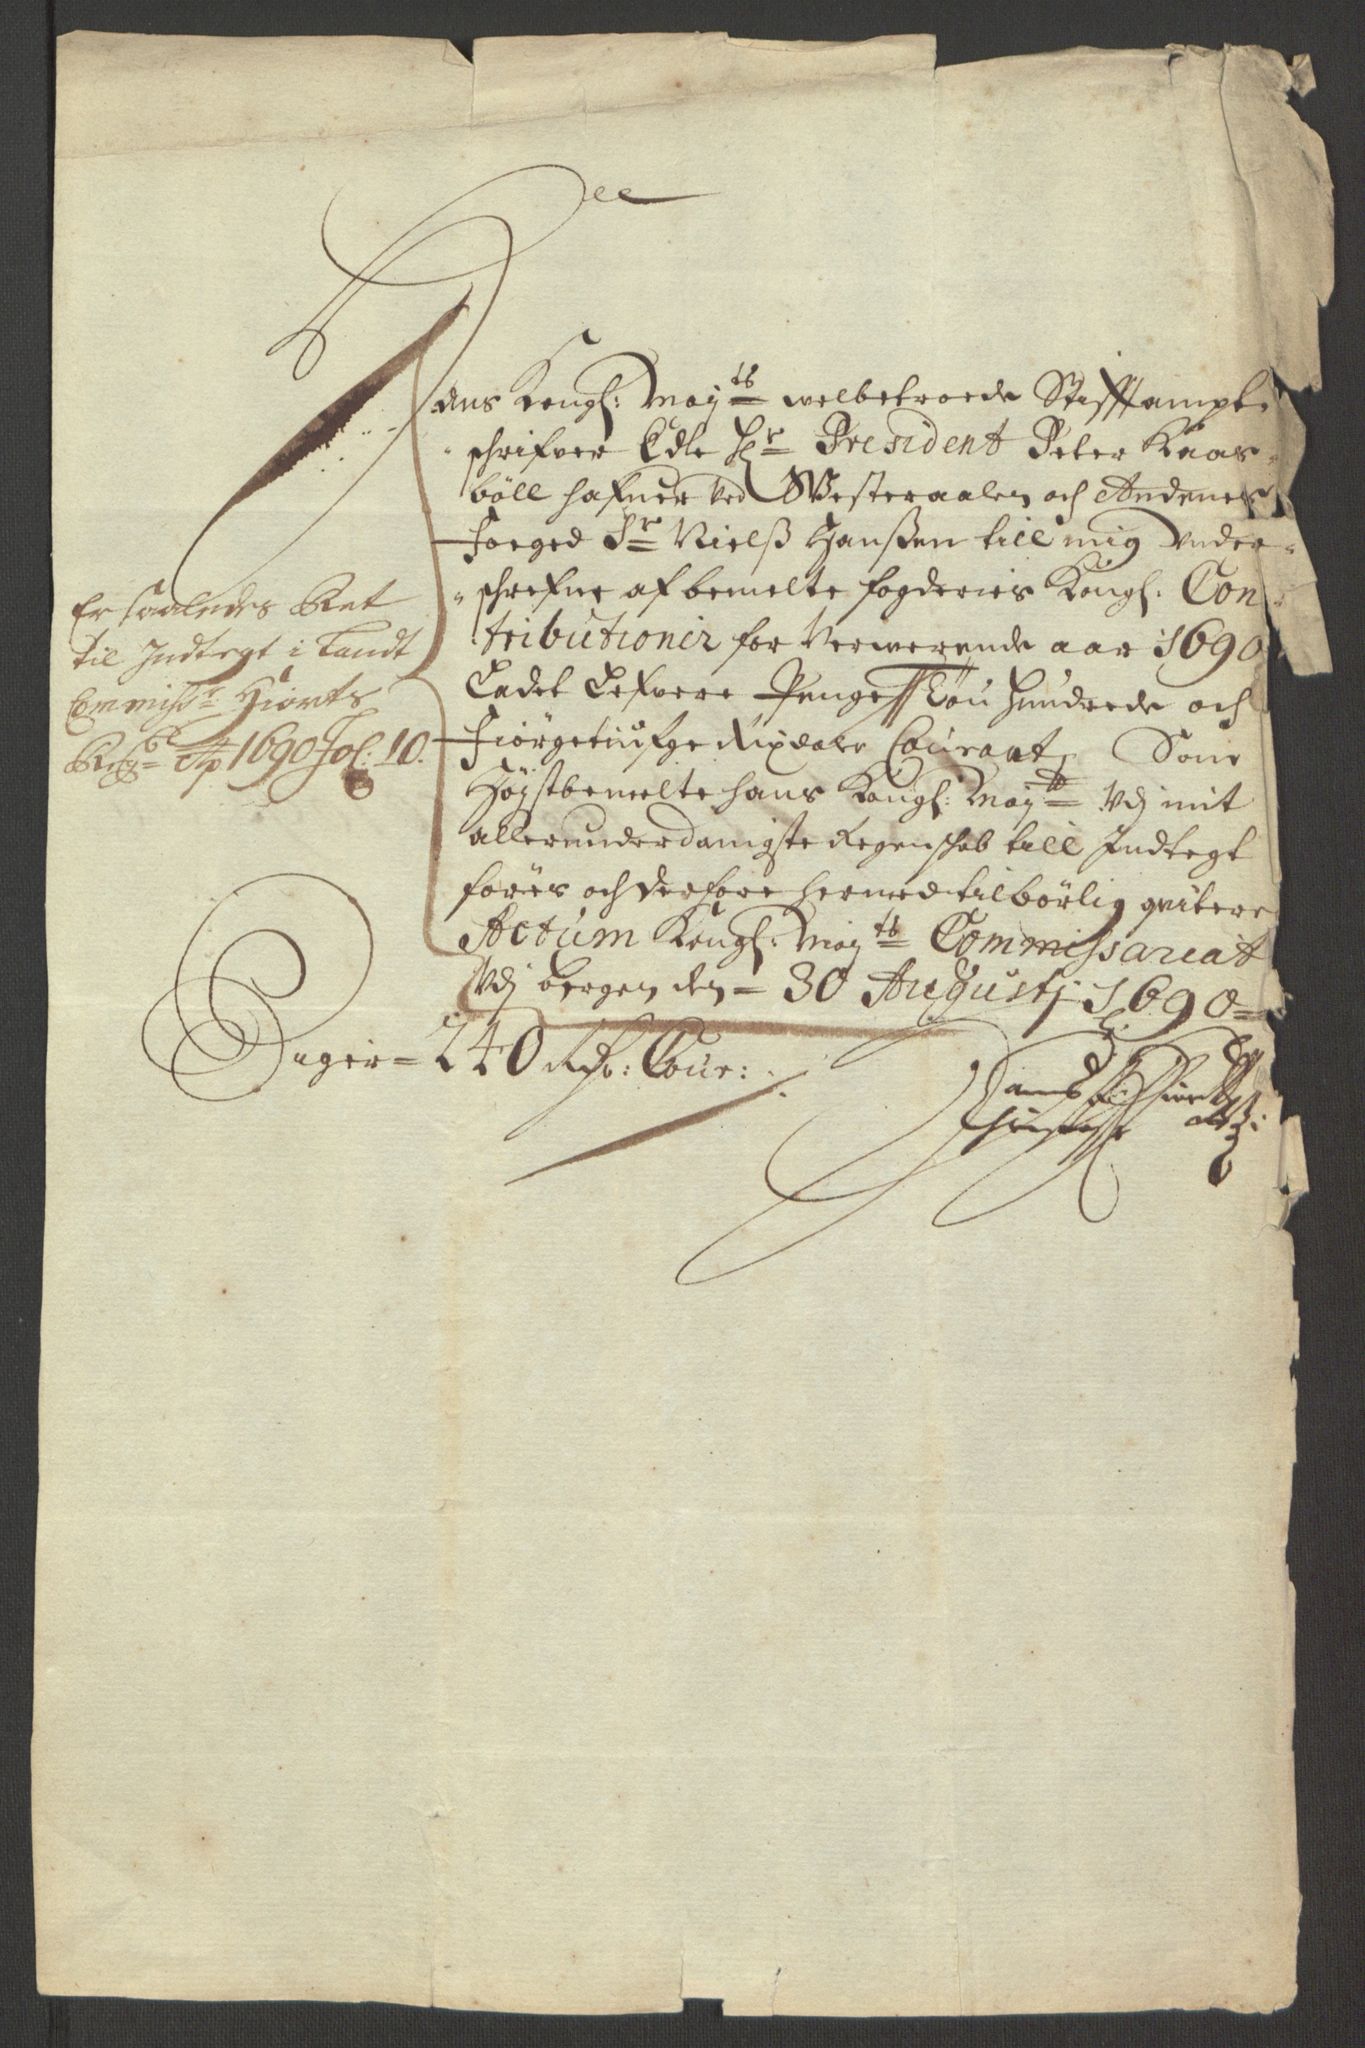 Hans Kongl: May:ts welbetroede Stifftampts
schrifver Edle Hr President Peter Kaas-
böll hafuer ved Westeraalen och Andenes
Foeged Sr Nielß Hanßen till mig under-
schrefne af bemelte fogderies Kongl: Con-
tributioner for Verwerende aar 1690
Ladet Lefvere Penge Tou Hundrede och
Fiörgetiufge Rixdaler Courant, Som
Høystbemelte hans Kongl: May:ts Vdj mit
allerunderdanigste Regenschab till Indtegt
föres och derfore hermed tilbörlig qvitere
Actum Kongl: May:ts Commissariat
Vdj Bergen den 30 Augustj 1690
Siger 240 Rdr: Cour:
Hans Hiort
Er saaledes Ret
til Indtegt i Landt
Commissr Hiorts
Regsb 1690 Fol: 10.